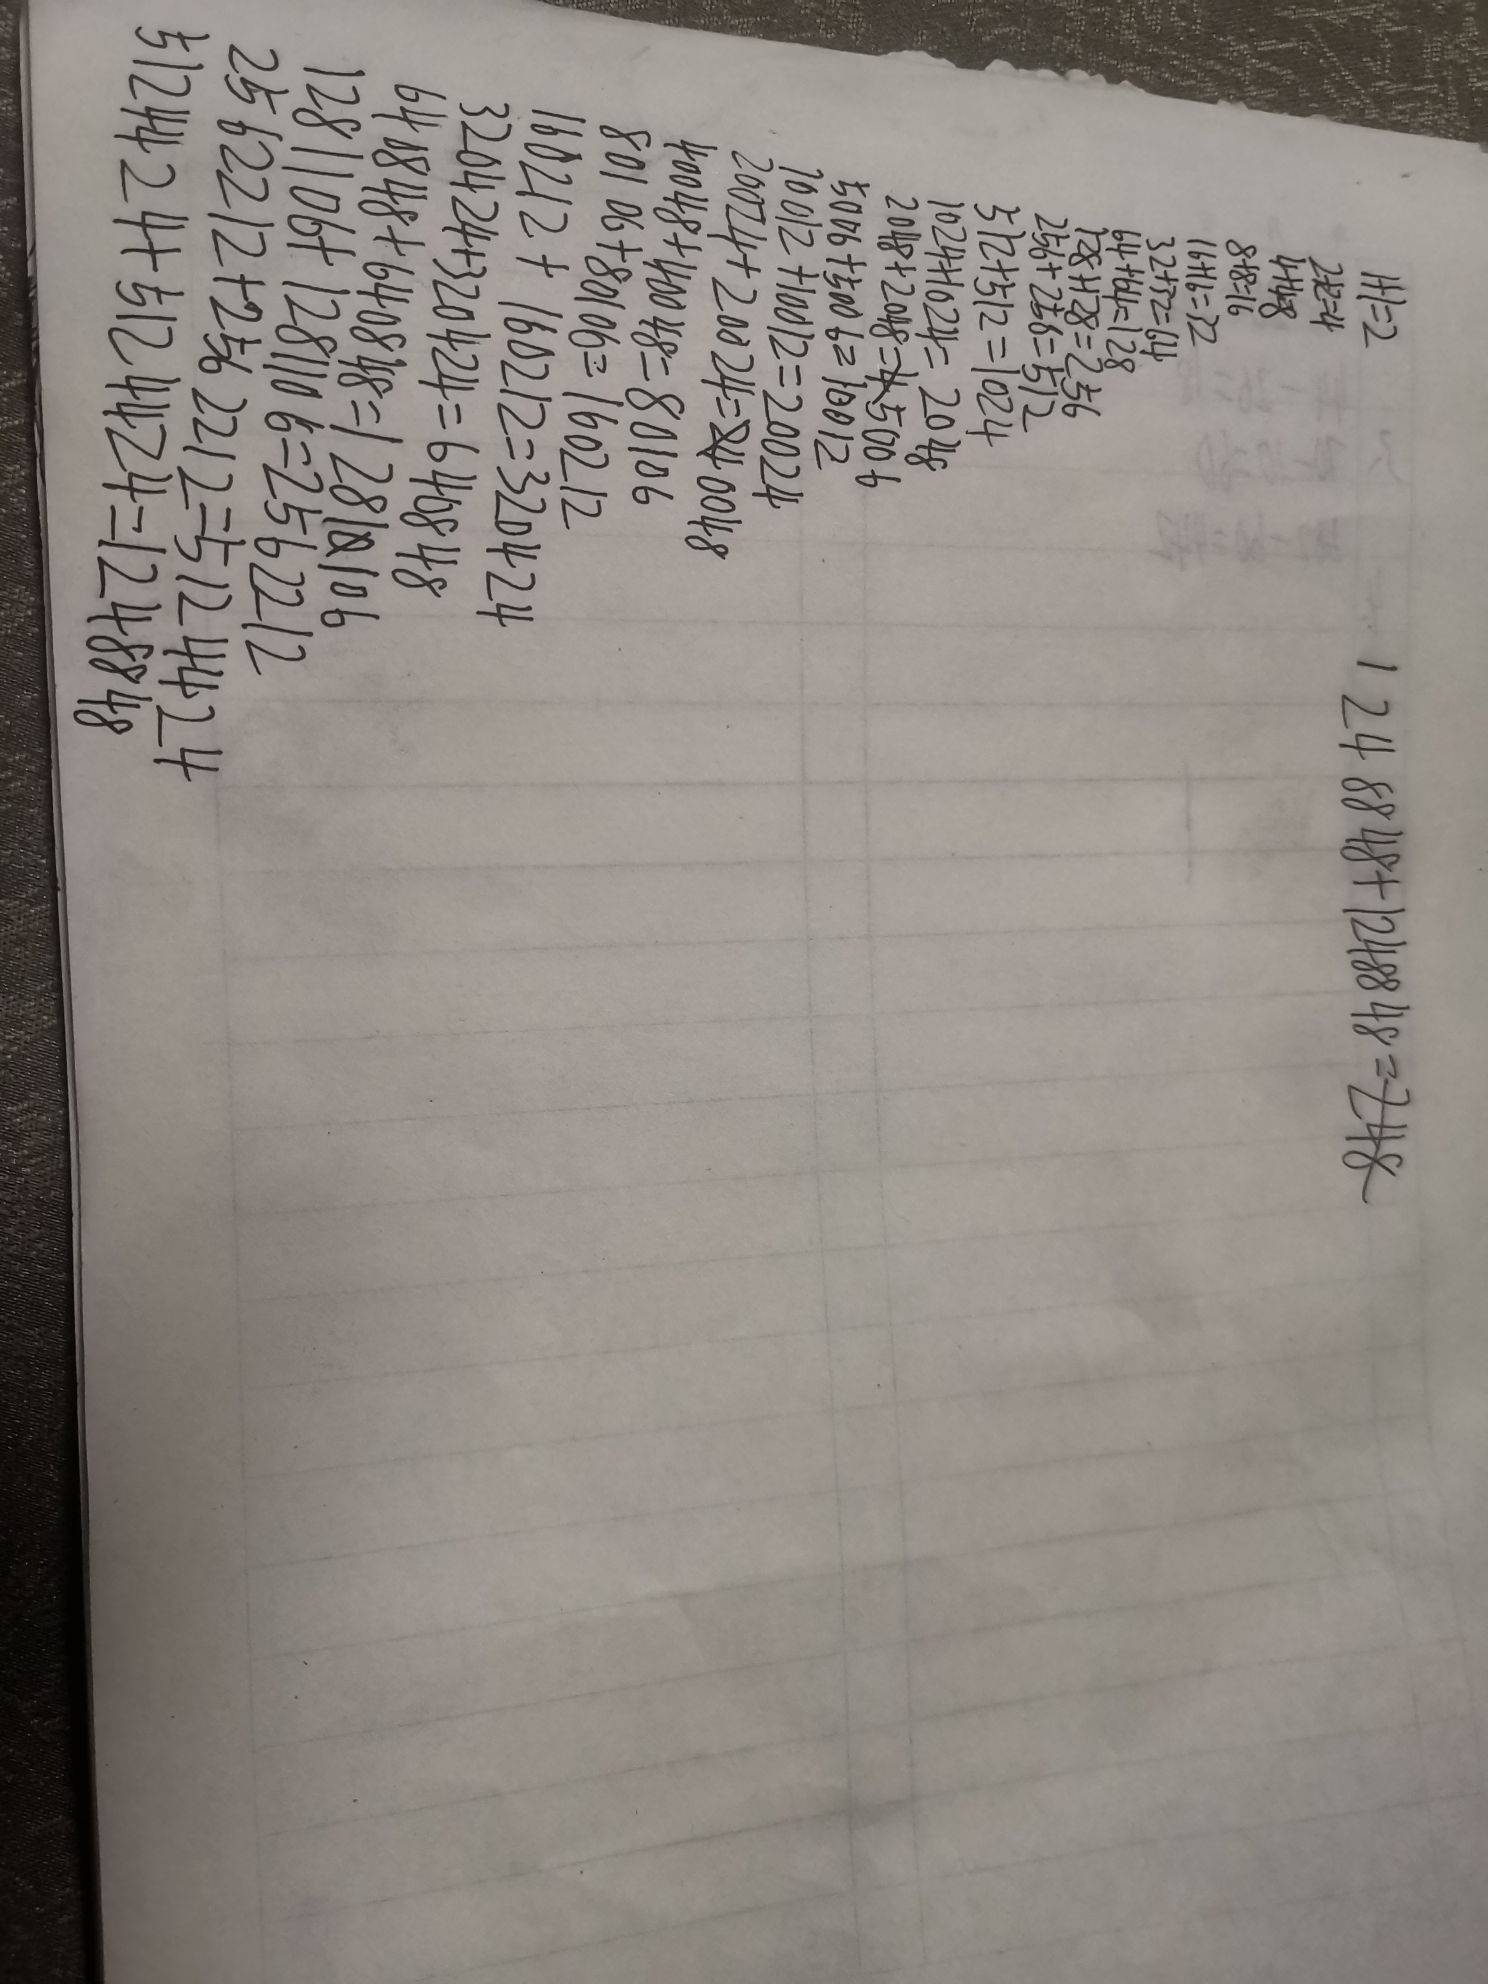 1+1=2
2+2=4
4+4=8
8+8=16
16+16=32
32+32=64
64+64=128
128+128=256
256+256=512
512+512=1024
1024+1024=2048
2048+2048=5006
5006+5006=10012
10012+10012=20024
20024+20024=40048
40048+40048=80106
80106+80106=160212
160212+160212=320424
320424+320424=640848
640848+640848=1288106
1281106+1281106=2562212
2562212+2562212=5124424
5124424+5124424=1248848
1248848+1248848=248